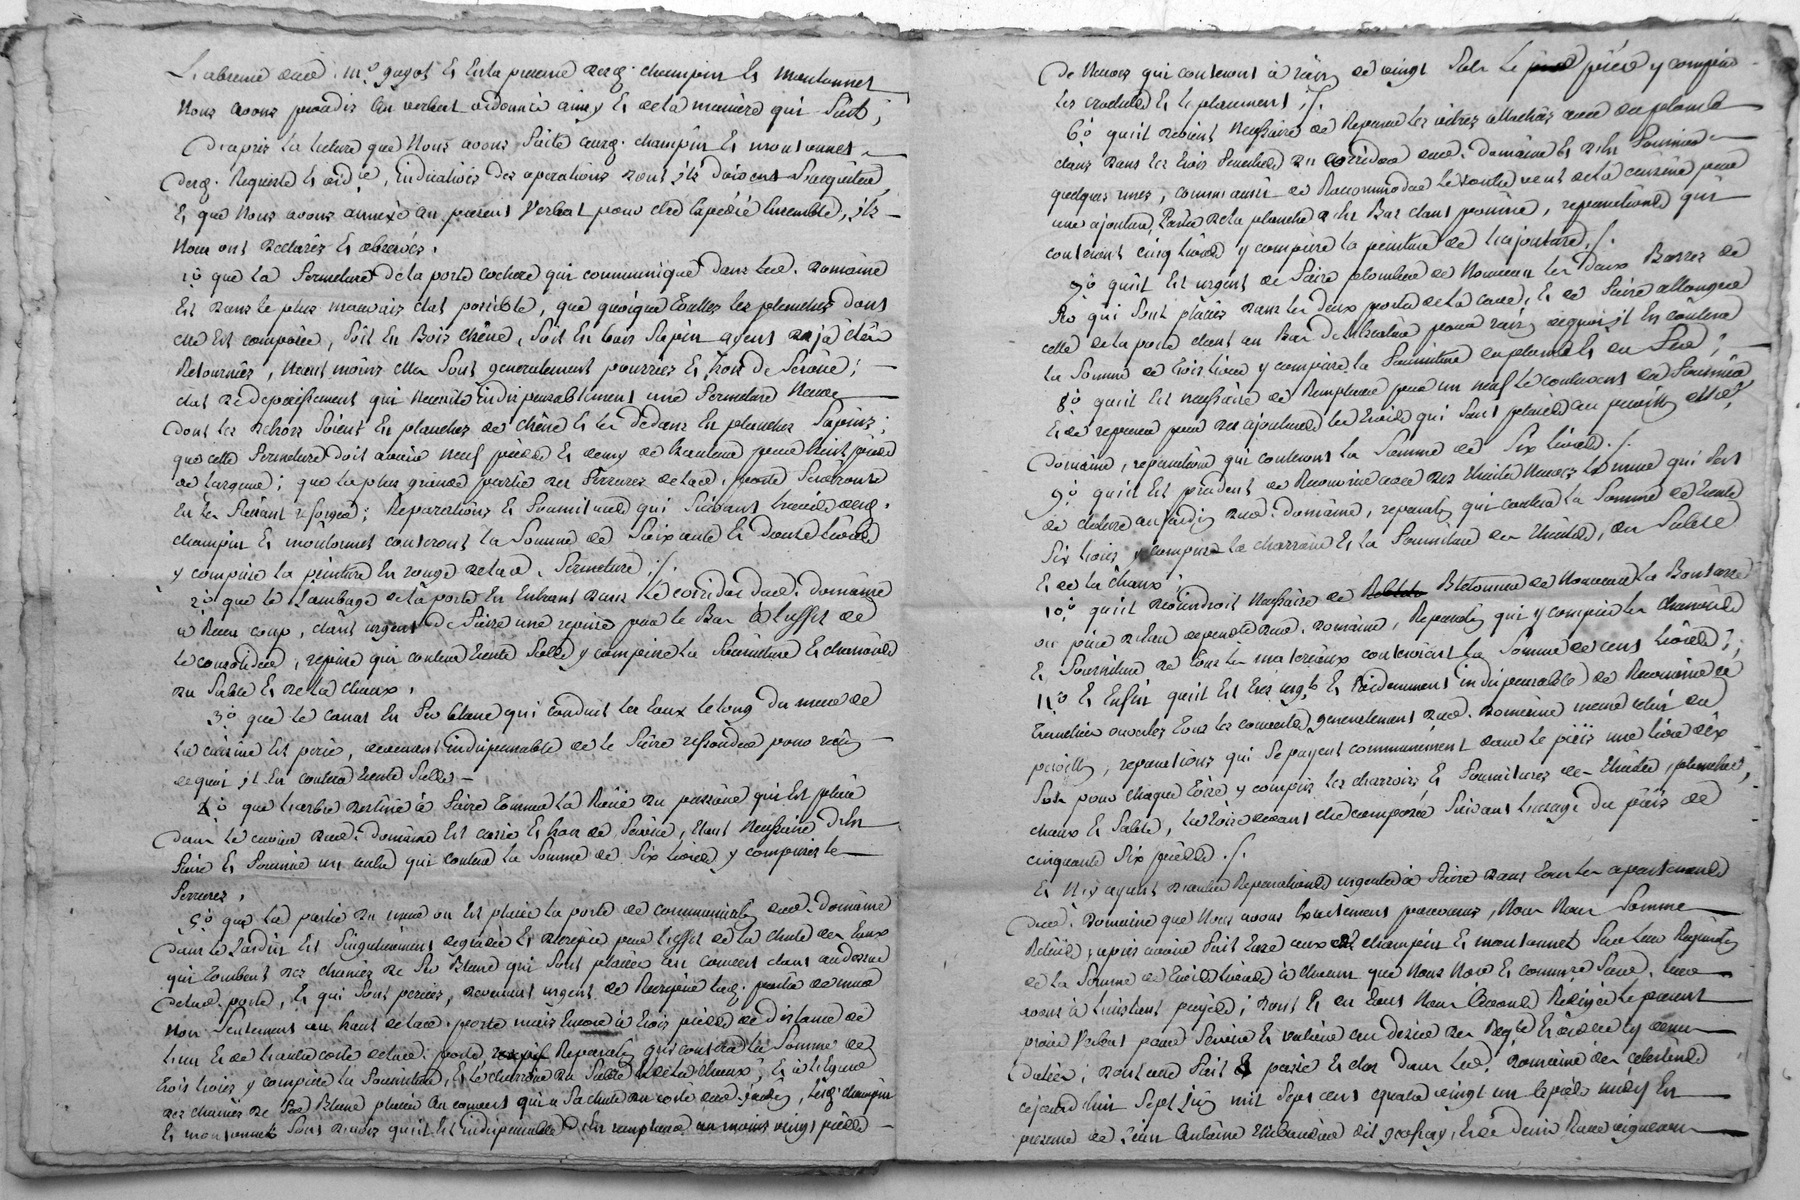 L'absence dud. Mo guyot Et En la presence desq. champin Et montonnet
Nous avons procédés au verbal ordonné ainsy Et de la maniere qui Suit;
D'après la lecture que Nous avons faitte auxq. champin Et montonnet
desq. Requeste Et ord.ce, indicatives des operations dont ils doivent S'acquitter,
Et que Nous avons annexé au présent Verbal pour être Expedié Ensemble, ils
Nous ont declarés Et observés.
1o que La Fermeture de la porte cochere qui communique dans led. Domaine
Est dans le plus mauvais état possible, que quoique touttes les planches dont
elle Est composée, soit En Bois chêne, soit En bois Sapin ayent deja été
Retournées, Neant moins elles Sont generalement pourries Et hors de Service;
état de deperissement qui Necessite indispensablement une Fermeture Neuve
Dont les dehors soient En planches de chêne Et les dedans En planches Sapins;
que cette Fermeture doit avoir neuf pieds Et demy de hauteur pour huit pieds
de largeur; que la plus grande partie des Ferrures de lad. porte Serviront
En les faisant reforger; Reparations Et Fournitures qui Suivant l'avis desq.
champin Et montonnet couteront La Somme de Soixante Et douze Livres
y compris la peinture En rouge de lad. Fermeture ./.
2o que le Jambage de la porte En Entrant dans Le coridor dud. domaine
a Reçu coup, étant urgent de Faire une reprise par le Bas à l'effet de
Le consolider, reprise qui coutera trente Sols y compris La Fourniture Et charroi
du Sable Et de La chaux.
3o que le canal En Fer blanc qui conduit les Eaux le long du mur de
La cuisine Est percé, devenant indispensable de le Faire ressouder pour raison
de quoi, il En coutera trente Sols
4o que L'arbre destiné à Faire tourner La Roüe du pressoir qui Est placé
Dans le cuvier dud. domaine Est cassé Et hors de Service, étant Necessaire d'En
Faire Et Fournir un autre qui coutera La Somme de Six Livres y compris les
Ferrures.
5o que La partie du mur où Est placée La porte de communication dud. domaine
Dans Le Jardin Est Singulièrement degradée Et par l'effet de la chute des Eaux
qui tombent des chaniers de Fer Blanc qui Sont placées au couvert au dessus
de lad. porte, Et qui sont percées, devenant urgent de Recrépir lad. partie de mur
Non Seulement au haut de lad. porte mais Encore à trois pieds de distance de
L'un Et de L'autre coté de lad. porte Reparation qui coutera La Somme de
trois Livres y compris la Fourniture, Et le charroi du Sable Et de La chaux; Et à l'égard
des chaniers de Fer Blanc placées au couvert qui a Sa chute du coté dud. jardin, lesq. champin
Et montonnet Sont d'avis qu'il Est indispensable d'En remplacer au moins vingt pieds
de Neuves qui couteront à raison de vingt Sols Le pied y compris
Les crochets Et le placement ./.
6o qu'il devient Necessaire de Reparer les vitres attachées avec du plomb
dans les trois Fenestres du coridor dud. domaine Et d'En Fournir
quelques unes, comme aussi de Raccommoder Le contrevent de la cuisine par
une ajouture, partie de la planche d'En Bas étant pourrie, reparations qui
couteront cinq Livres y compris la peinture de L'ajouture ./.
7o qu'il Est urgent de Faire plomber de Nouveau les deux Barres de
Fer qui Sont placées dans les deux portes de la cave, Et de Faire allonger
celle de la porte étant au Bas de l'Escalier pour raison de quoi, il En coutera
La Somme de trois Livres y compris la Fourniture du plomb Et du Fer;
8o qu'il Est Necessaire de Remplacer par un neuf le contrevent du Fournier
Et de reparer par des ajoutures les trois qui sont placés au pavillon dud.
Domaine, reparations qui couteront La Somme de Six Livres ./.
9o qu'il Est prudent de Recouvrir avec des Thuiles Neuves Le mur qui Sert
de cloture au jardin dud. Domaine, reparation qui coutera La Somme de trente
Six Livres, y compris le charroi Et la Fourniture des Thuiles, du Sable
Et de la chaux.
10o qu'il deviendroit Necessaire de Retourner de Nouveau La Boutasse
ou pièce d'Eau dependte dud. Domaine, Reparation qui y compris les charrois
Et Fourniture de tous les materiaux couteroient La Somme de cent Livres;
11o Et Enfin qu'il Est tres urgt Et Evidemment indispensable de Recouvrir à
tranchée ouverte tous les couverts generalement dud. Domaine même celui du
pavillon, reparations qui Se payent communement dans le païs une Livre dix
Sols pour chaque toise y compris les charrois, Et Fournitures des Thuiles, planches,
chaux Et Sable, La toise devant être composée Suivant L'usage du païs de
cinquante Six pieds ./.
Et N'y ayant d'autres Reparations urgentes à Faire dans tous les apartements
Dud. Domaine que Nous avons Exactement parcourus, Nous Nous Sommes
Retirés, après avoir Fait taxe aux champin Et montonnet Sur Leur Requisition
de la Somme de trois Livres à chacun que Nous Noe Et commre Susd. leur
avons à L'instant payée; dont Et du tout Nous avons Redigé Le present
procès Verbal pour Servir Et valoir au desir des Regles Et order cy dessus
Datées; dont acte Fait passé Et clos dans Led. Domaine des celestins
cejourd'huy Sept Juin mil Sept cent quatre vingt un après midy En
presence de Jean Antoine dit gouffray, Et de Denis vigneron